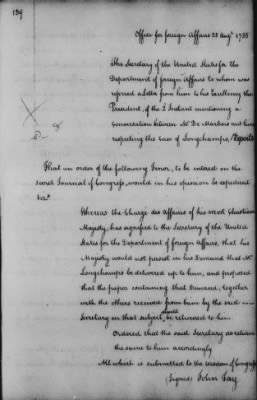 139
Office for foreign Affairs 23 augt. 1785
The Secretary of the United States for the
Department of foreign Affairs to whom was
referred a Letter from him to his Excellency the
President, of the 2d Instant mentioning a
conversation between Mr De Marbois and him
respecting the case of Longchamps, Reports
That an order of the following Tenor, to be entered on the
secret Journal of Congress, would in his opinion be expedient
Vizt.
Whereas the Chargé des Affaires of his most Christian
Majesty, has signified to the Secretary of the United
States for the Department of foreign Affairs, that his
Majesty would not persist in his Demand that Mr
Longchamps be delivered up to him, and proposed
that the paper containing that Demand, together
with the others received from him by the said
Secretary on that subject, should be returned to him.
Ordered that the said Secretary do return
the same to him accordingly
All which is submitted to the wisdom of Congress
(Signed) John Jay